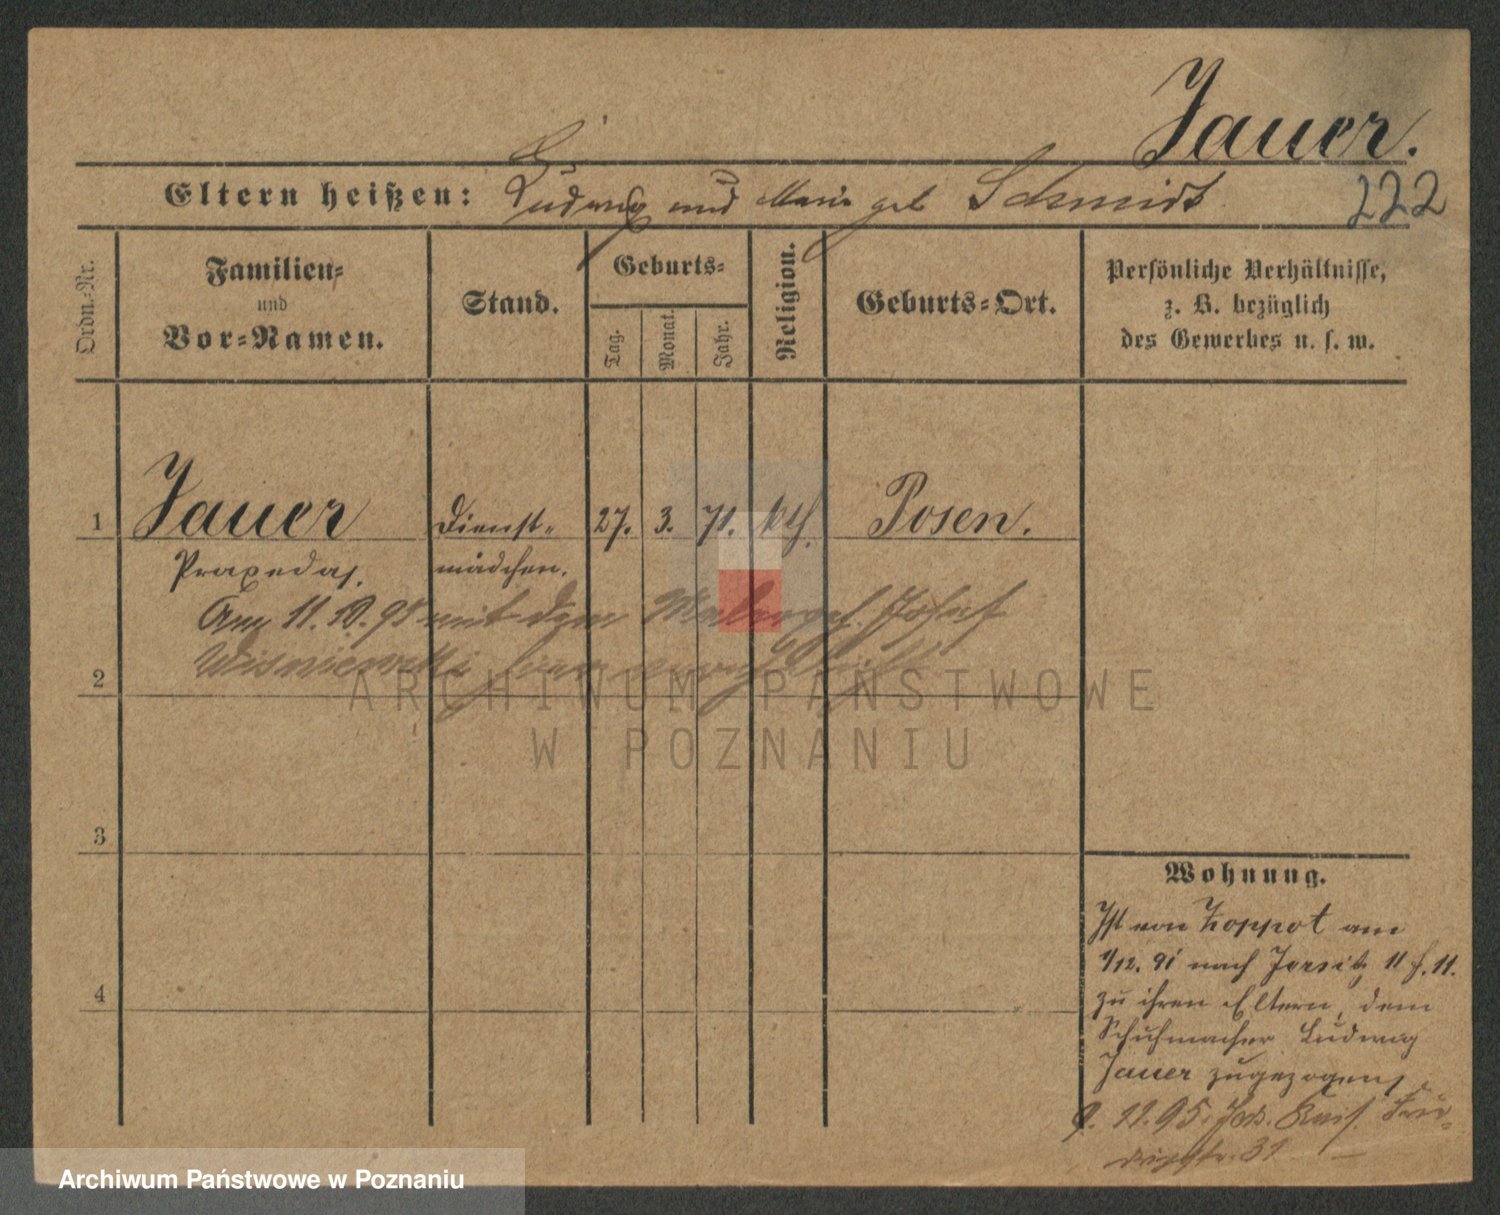 Jauer.
Eltern heißen: Ludwig und Marie geb Schmidt
222
Ordn.-Nr.
Familien-
und
Vor-Namen.
Stand.
Geburts-
Tag.
Monat.
Jahr.
Religion.
Geburts-Ort.
Persönliche Verhältnisse,
z. B. bezüglich
des Gewerbes u. s. w.
1 Jauer Dienst- 27. 3. 71. kth. Posen.
Praxedas, mädchen.
Am 11.10.98 mit dem Malergeh. Josef
Wisniewski hier
2
ARCHIWUM PAŃSTWOWE
W POZNANIU
3
4
Wohnung.
Ist von Zoppot am
1/12. 91 nach Jersitz 11 f. 11.
zu ihren Eltern, dem
Schuhmacher Ludwig
Jauer zugezogen,
9. 11. 95. Jed. Kais. Frie-
drichstr. 39
Archiwum Państwowe w Poznaniu